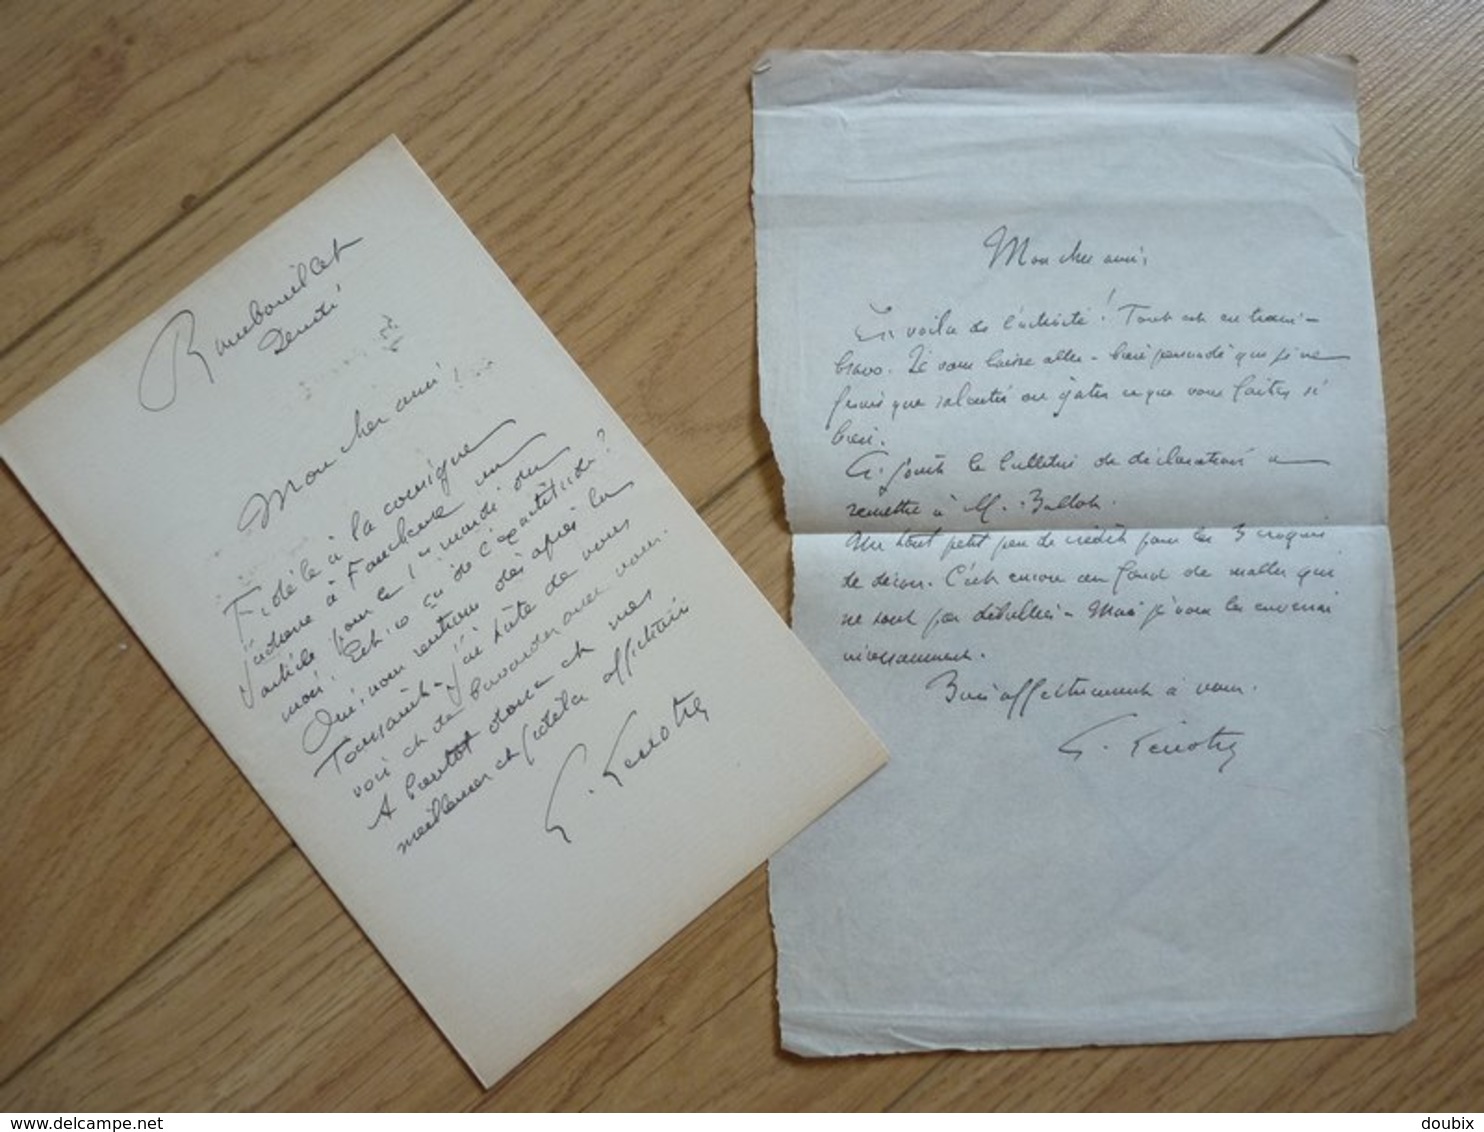 Rambouillet
Lundi
Mon cher ami,
Fidèle à la consigne
j'adresse à Fauchene un
article pour le 1er mardi du
mois. Est-ce là de l'exactitude?
Oui, nous rentrons dès après la
Toussaint - j'ai hâte de vous
voir et de bavarder avec vous.
A bientôt donc et mes
meilleures et fidèles affections
G. Kenotz
Mon cher ami,
En voilà de l'activité! Tout est en train -
bravo. Je vous laisse aller - bien persuadé que je ne
ferais que ralentir ou gâter ce que vous faites si
bien.
Ci-joint le bulletin de déclaration à
remettre à M. Ballot.
Un tout petit peu de crédit pour les 3 croquis
de décors. C'est encore au fond de malles qui
ne sont pas déballées - Mais je vous les enverrai
incessamment.
Bien affectueusement à vous.
G. Kenotz
delcampe.net
doubix